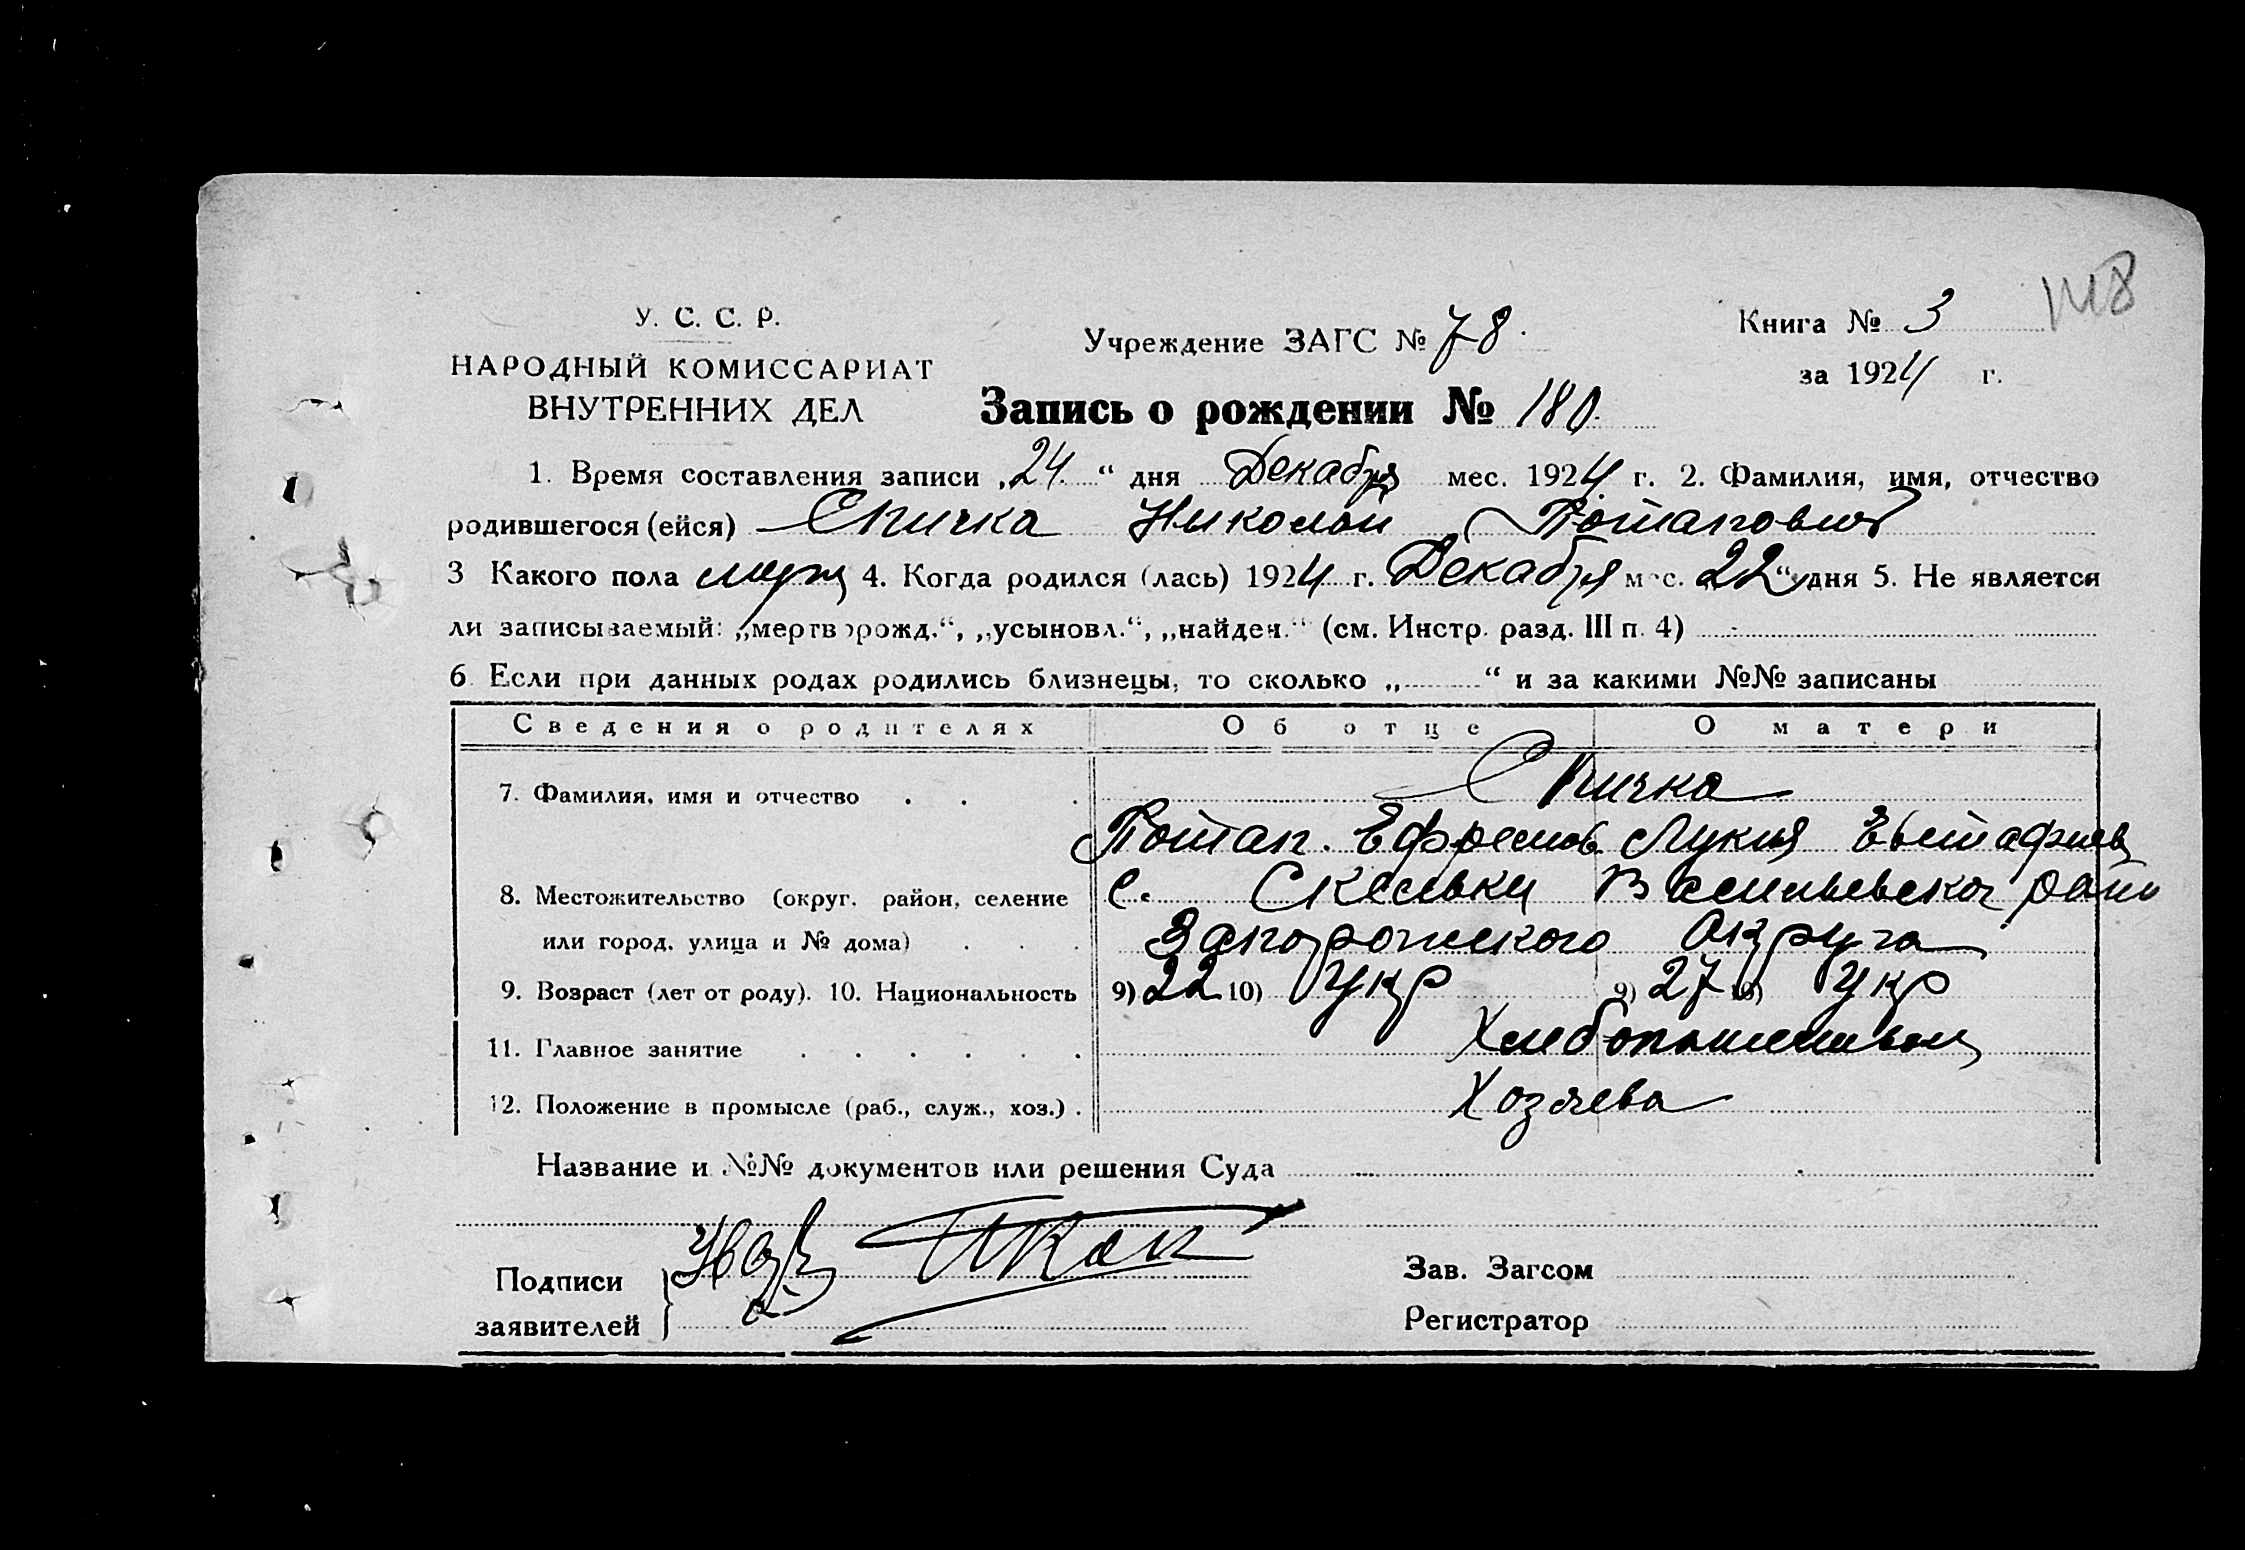 У. С. С. Р.
НАРОДНЫЙ КОМИССАРИАТ
ВНУТРЕННИХ ДЕЛ
Учреждение ЗАГС № 78.
Книга № 3
за 1924 г.
Запись о рождении № 180
1. Время составления записи „24.“ дня Декабря мес. 1924 г. 2. Фамилия, имя, отчество
родившегося (ейся) Спичка Николай Потапович
3 Какого пола муж 4. Когда родился (лась) 1924 г. Декабря мес. 22 “ дня 5. Не является
ли записываемый: „мертворожд.“, „усыновл.“, „найден.“ (см. Инстр. разд. III п. 4) -
6. Если при данных родах родились близнецы, то сколько „ “ и за какими №№ записаны
Сведения о родителях Об отце О матери
7. Фамилия, имя и отчество . . . Спичка
Потап. Ефремов. Лукия Евстафиев
8. Местожительство (округ, район, селение с. Скельки Васильевског райо
или город, улица и № дома) . . . Запорожского Округа
9. Возраст (лет от роду). 10. Национальность 9) 22 10) Укр 9) 27 10) Укр
11. Главное занятие . . . . . . Хлебопашенством
12. Положение в промысле (раб., служ., хоз.) . Хозяева
Название и №№ документов или решения Суда
Подписи
заявителей
Зав. Загсом
Регистратор